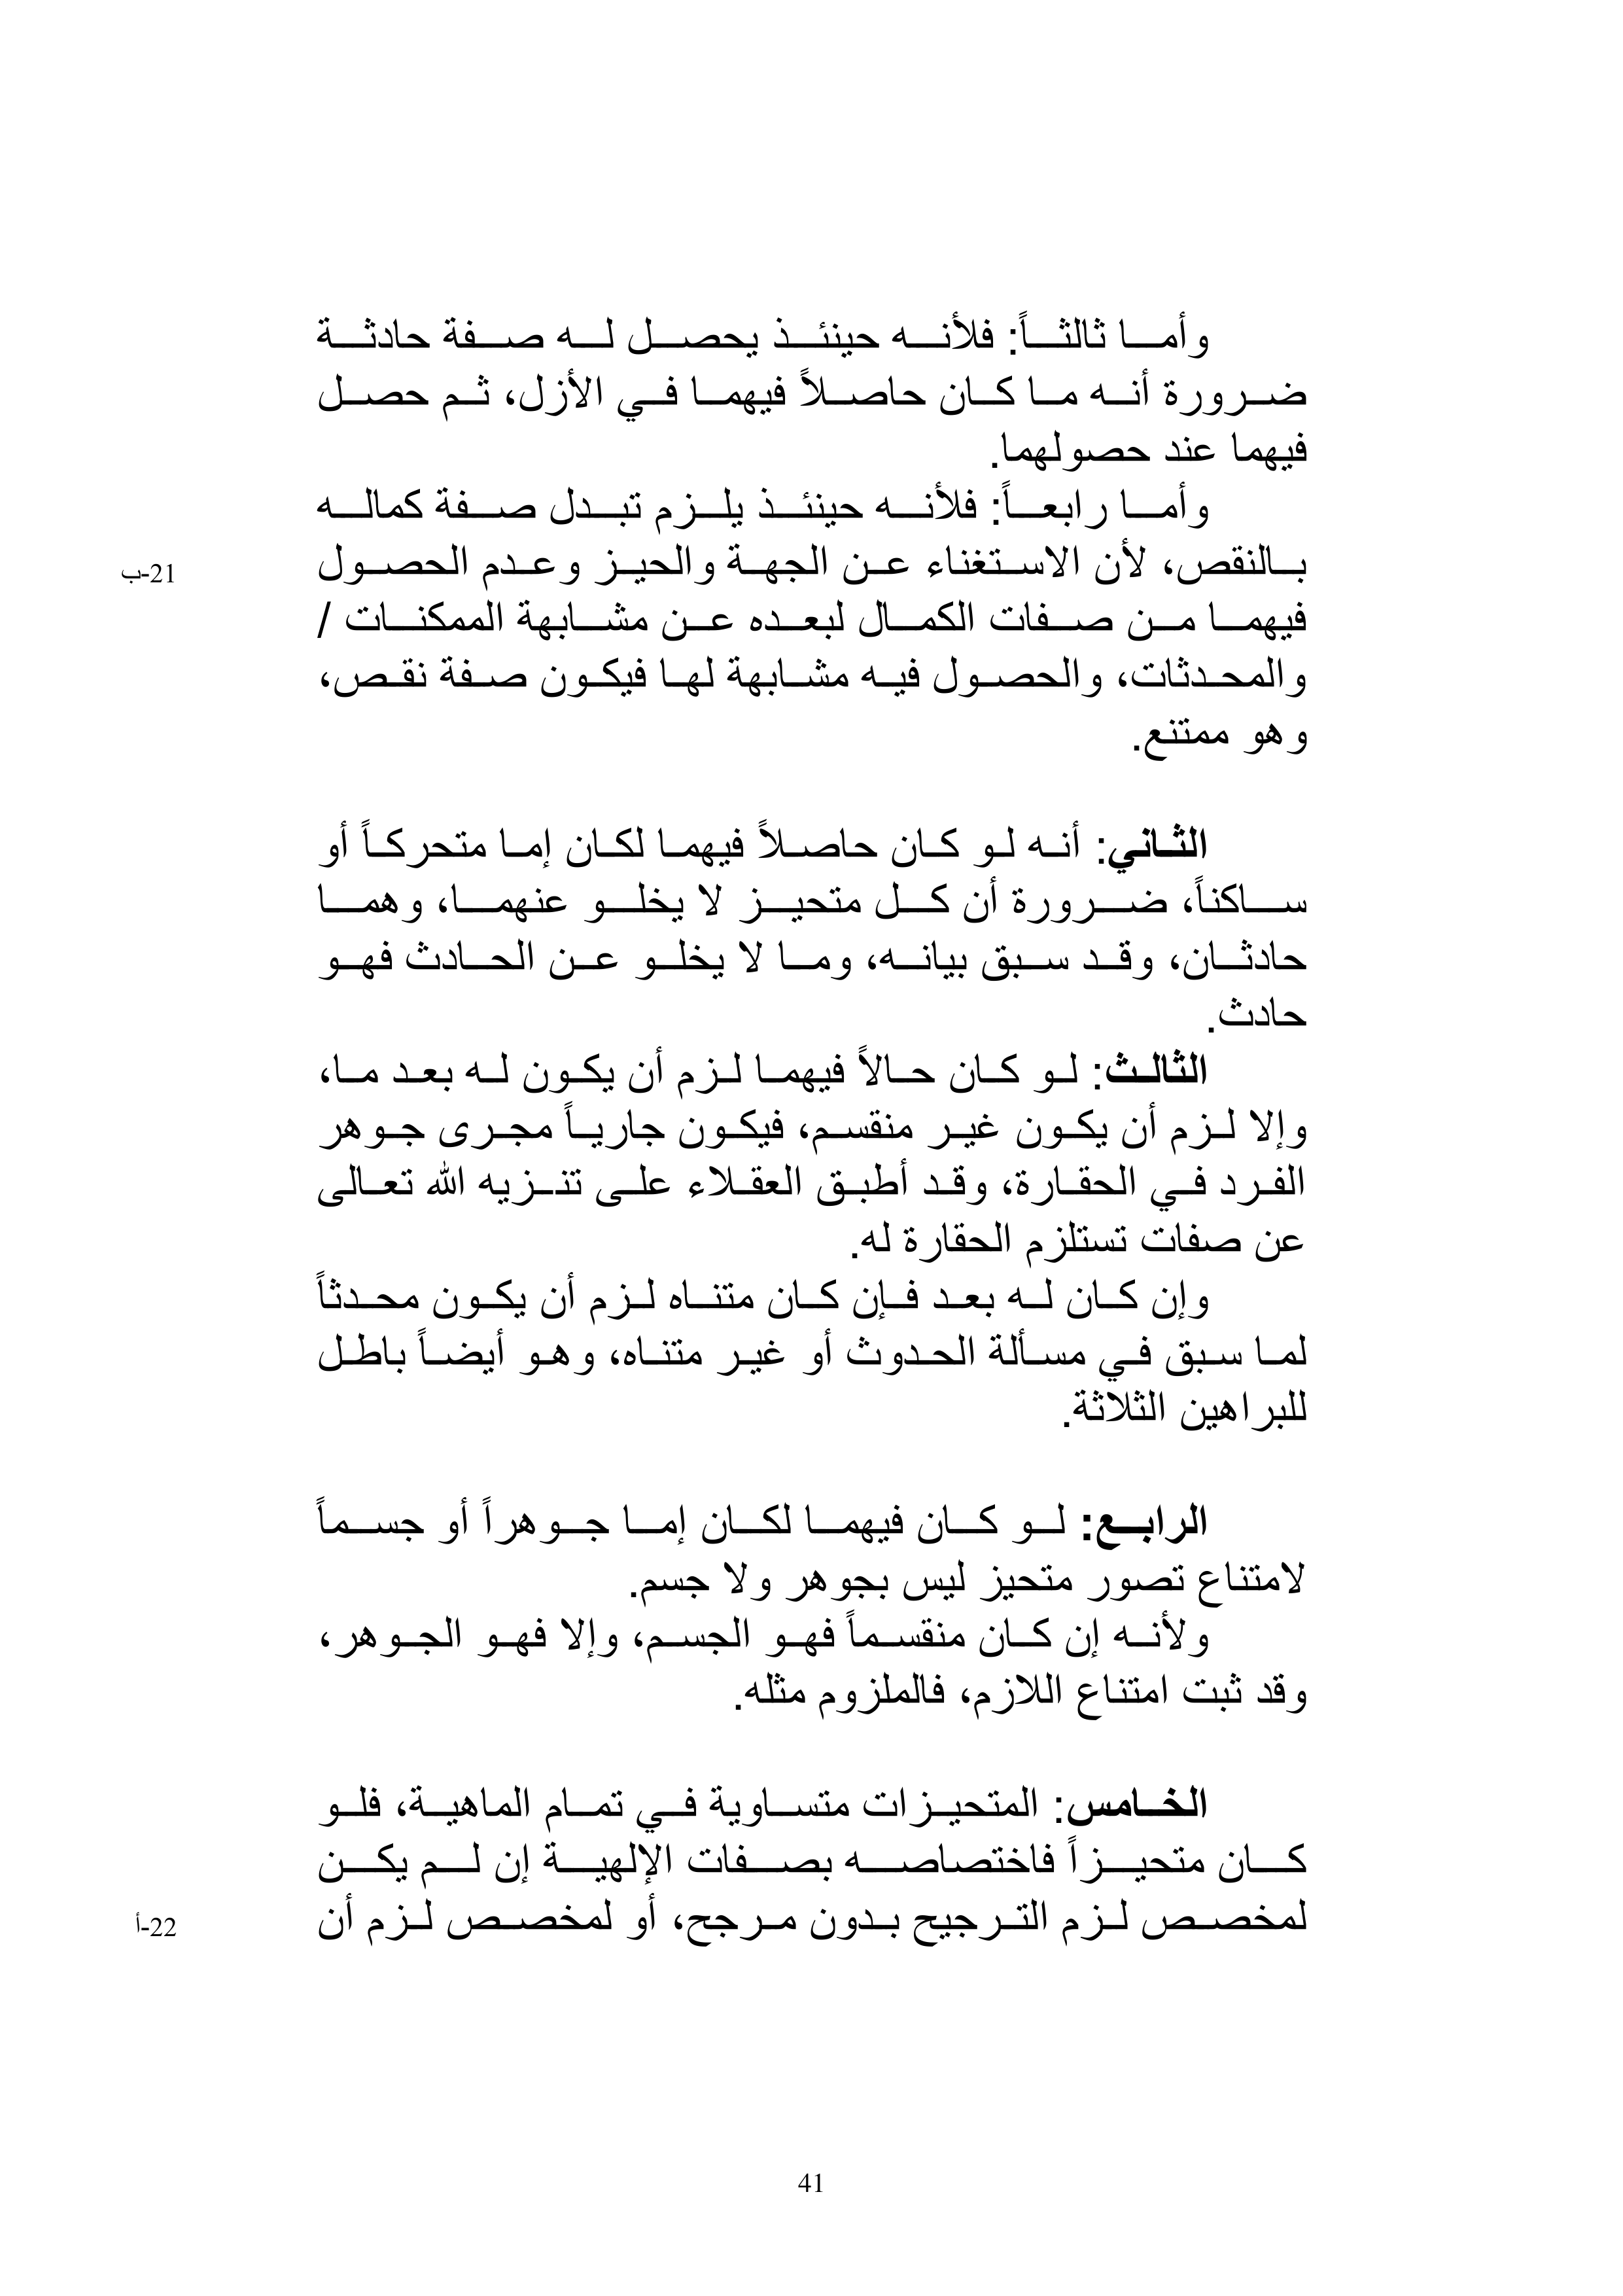 وأما ثالثاً: فلأنه حينئذ يحصل له صفة حادثة
ضرورة أنه ما كان حاصلاً فيهما في الأزل، ثم حصل
فيهما عند حصولهما.
وأما رابعاً: فلأنه حينئذ يلزم تبدل صفة كماله
بالنقص، لأن الاستغناء عن الجهة والحيز وعدم الحصول
21-ب
فيهما من صفات الكمال لبعده عن مشابهة الممكنات /
والمحدثات، والحصول فيه مشابهة لها فيكون صفة نقص،
وهو ممتنع.
الثاني: أنه لو كان حاصلاً فيهما لكان إما متحركاً أو
ساكناً، ضرورة أن كل متحيز لا يخلو عنهما، وهما
حادثان، وقد سبق بيانه، وما لا يخلو عن الحادث فهو
حادث.
الثالث: لو كان حالاً فيهما لزم أن يكون له بعد ما،
وإلا لزم أن يكون غير منقسم، فيكون جارياً مجرى جوهر
الفرد في الحقارة، وقد أطبق العقلاء على تنزيه الله تعالى
عن صفات تستلزم الحقارة له.
وإن كان له بعد فإن كان متناه لزم أن يكون محدثاً
لما سبق في مسألة الحدوث أو غير متناه، وهو أيضاً باطل
للبراهين الثلاثة.
الرابع: لو كان فيهما لكان إما جوهراً أو جسماً
لامتناع تصور متحيز ليس بجوهر ولا جسم.
ولأنه إن كان منقسماً فهو الجسم، وإلا فهو الجوهر،
وقد ثبت امتناع اللازم، فالملزوم مثله.
الخامس: المتحيزات متساوية في تمام الماهية، فلو
كان متحيزاً فاختصاصه بصفات الإلهية إن لم يكن
لمخصص لزم الترجيح بدون مرجح، أو لمخصص لزم أن
22-أ
41